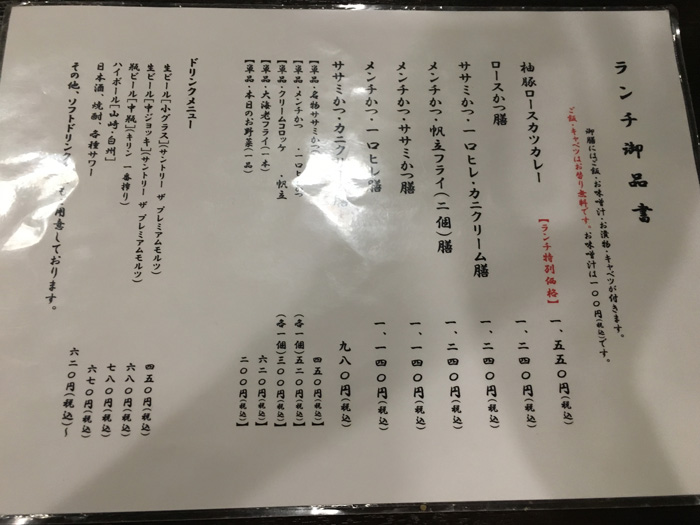 ランチ御品書
御膳にはご飯・お味噌汁・お漬物・キャベツが付きます。
ご飯・キャベツはお替り無料です。お味噌汁は一〇〇円(税込)です。
【ランチ特別価格】
柚豚ロースカツカレー 一、五五〇円(税込)
ロースかつ膳 一、二四〇円(税込)
ササミかつ・一口ヒレ・カニクリーム膳 一、二四〇円(税込)
メンチかつ・帆立フライ(二個)膳 一、二四〇円(税込)
メンチかつ・ササミかつ膳 一、一四〇円(税込)
メンチかつ・一口ヒレ膳 一、一四〇円(税込)
ササミかつ・カニク 膳 九八〇円(税込)
【単品・名物ササミか 四五〇円(税込)】
【単品・メンチかつ ・一口ヒレかつ (各一個)五二〇円(税込)】
【単品・クリームコロッケ ・帆立 (各一個)三〇〇円(税込)】
【単品・大海老フライ(一本) 六二〇円(税込)】
【単品・本日のお野菜(一本) 二〇〇円(税込)】
ドリンクメニュー
生ビール[小グラス](サントリー ザ プレミアムモルツ) 四五〇円(税込)
生ビール[中ジョッキ](サントリー ザ プレミアムモルツ) 六八〇円(税込)
瓶ビール[中瓶](キリン 一番搾り) 七八〇円(税込)
ハイボール[山崎・白州] 六七〇円(税込)
日本酒、焼酎、各種サワー 六二〇円(税込)〜
その他、ソフトドリンク 用意しております。